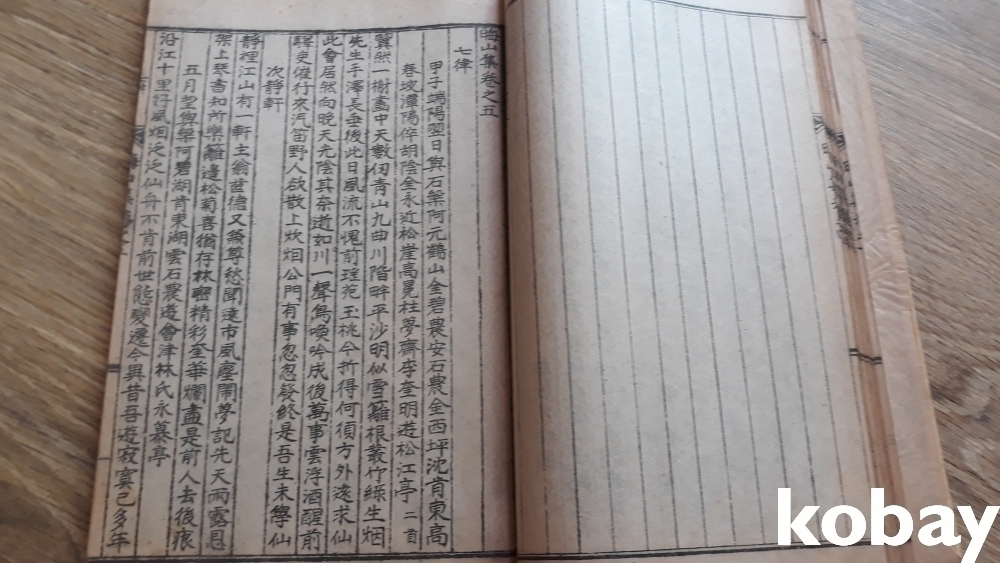 晦山集卷之五
七律
甲子端陽翌日與石槃阿元鶴山金碧農安石農金西坪沈肯東高
春坡潭陽倅胡陰金永近松崖高冕柱夢齋李奎明遊松江亭 二首
翼然一榭畵中天數仞青山九曲川階畔平沙明似雪籬根叢竹綠生烟
先生手澤長垂後此日風流不愧前瑶苑玉桃今折得何須方外遠求仙
此會居然向晚天光陰其奈逝如川一聲鳥喚吟成後萬事雲浮酒醒前
驛吏催行來汽笛野人欲散上炊烟公門有事忽忽發終是吾生未學仙
次靜軒
靜裡江山有一軒主翁齒德又兼尊愁聞遠市風塵鬧夢記先天雨露恩
架上琴書知所樂籬邊松菊喜猶存林壑精彩奎華爛盡是前人去後痕
五月望與槃阿碧湖肯東湖雲石農遊會津林氏永慕亭
沿江十里好風烟泛泛仙舟不肯前世態變遷今與昔吾遊寂寞已多年
kobay